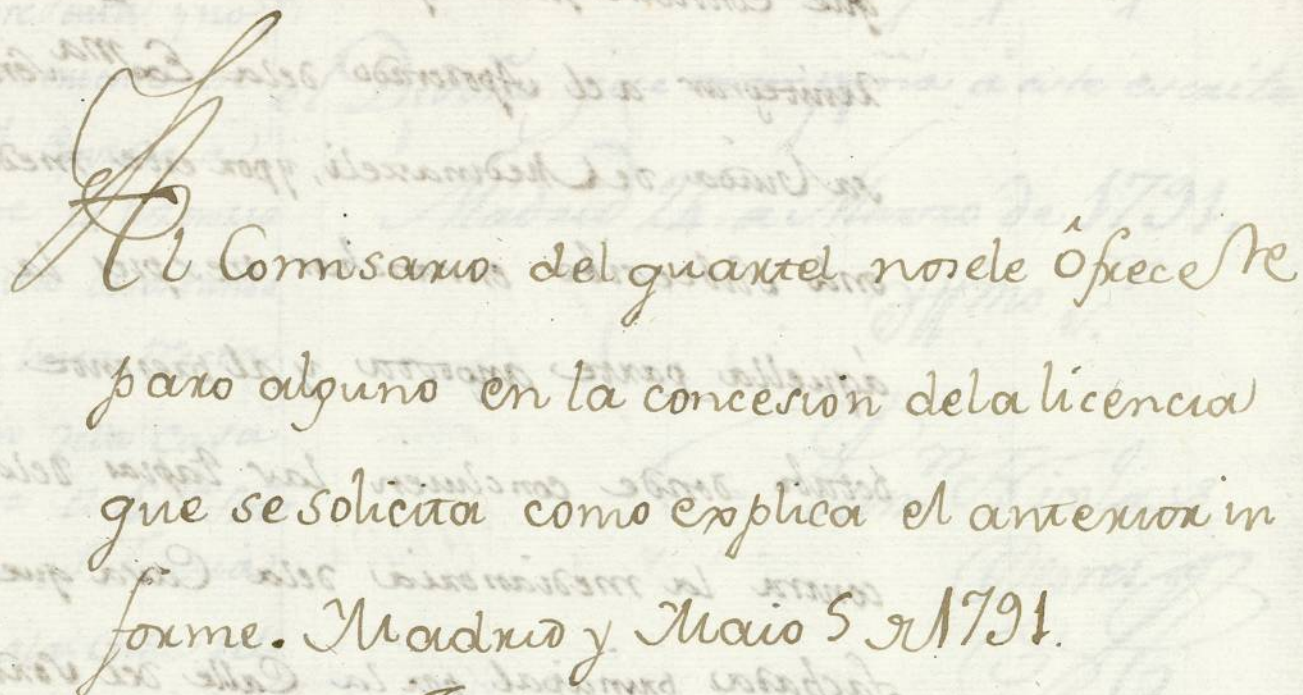 Al Comisario del quartel no se le ôfrece Re
paro alguno en la concesion de la licencia
que se solicita como explica el anterior in
forme. Madrid y Maio 5 de 1791.